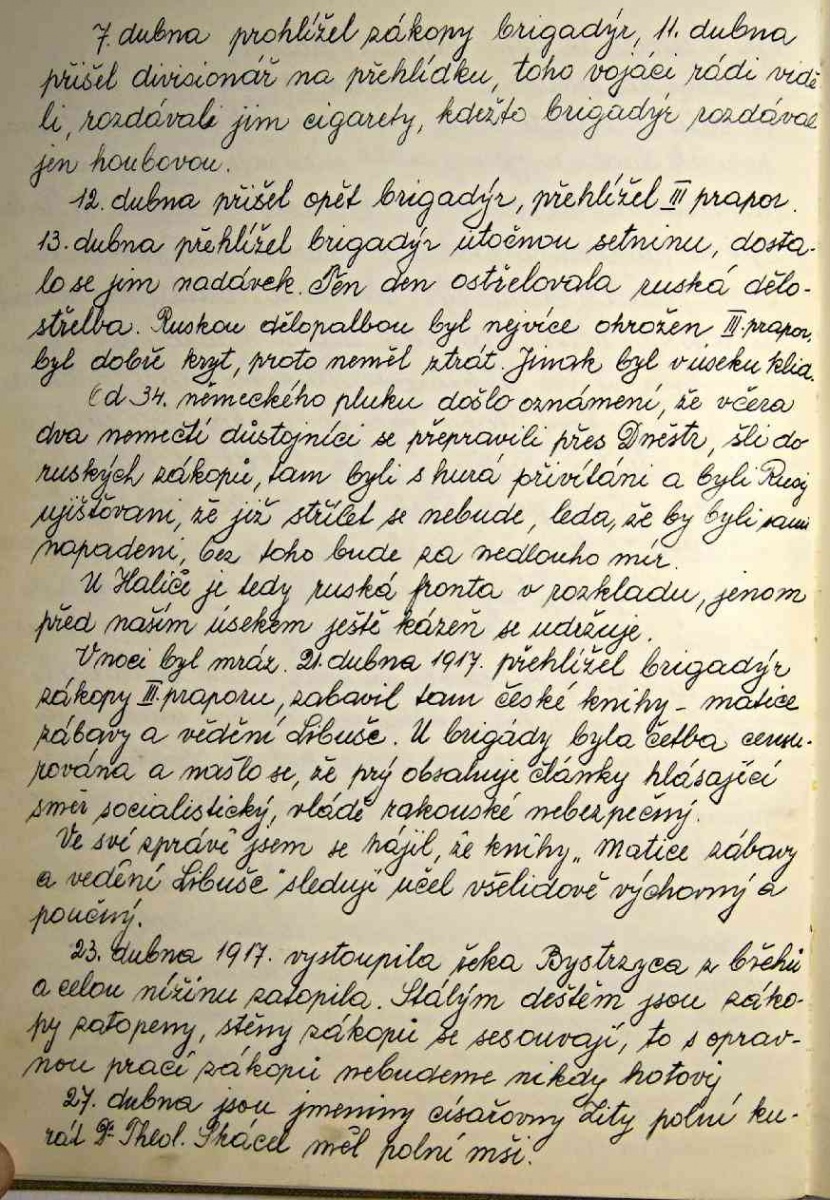 7. dubna prohlížel zákopy brigadýr, 11. dubna
přišel divisionář na přehlídku, toho vojáci rádi vidě
li, rozdávali jim cigarety, kdežto brigadýr rozdával
jen houbovou.
12. dubna přišel opět brigadýr, přehlížel III prapor.
13. dubna přehlížel brigadýr útočnou setninu, dosta-
lo se jim nadávek. Ten den ostřelovala ruská dělo-
střelba. Ruskou dělopalbou byl nejvíce ohrožen III. prapor,
byl dobře kryt, proto neměl ztrát. Jinak byl v úseku klid.
Od 34. německého pluku došlo oznámení, že včera
dva nemečtí důstojníci se přepravili přes Dněstr, šli do
ruských zákopů, tam byli s hurá přivítáni a byli Rusy
ujišťovani, že již střílet se nebude, leda, že by byli sami
napadeni, bez toho bude za nedlouho mír.
U Haliče je tedy ruská fronta v rozkladu, jenom
před naším úsekem ještě kázeň se udržuje.
V noci byl mráz. 21. dubna 1917. přehlížel brigadýr
zákopy III. praporu, zabavil tam české knihy – matice
zábavy a vědění Libuše. U brigády byla četba censu-
rována a našlo se, že prý obsahuje články hlásající
směr socialistický, vládě rakouské nebezpečný.
Ve své zprávě jsem se hájil, že knihy „Matice zábavy
a vedění Libuše" sledují účel všelidově výchovný a
poučný.
23. dubna 1917. vystoupila řeka Bystrzyca z břehů
a celou nížinu zatopila. Stálým deštěm jsou záko-
py zatopeny, stěny zákopů se sesouvají, to s oprav-
nou prací zákopů nebudeme nikdy hotovi
27. dubna jsou jmeniny císařovny Zity polní ku-
rát Dr. Theol. Skácel měl polní mši.